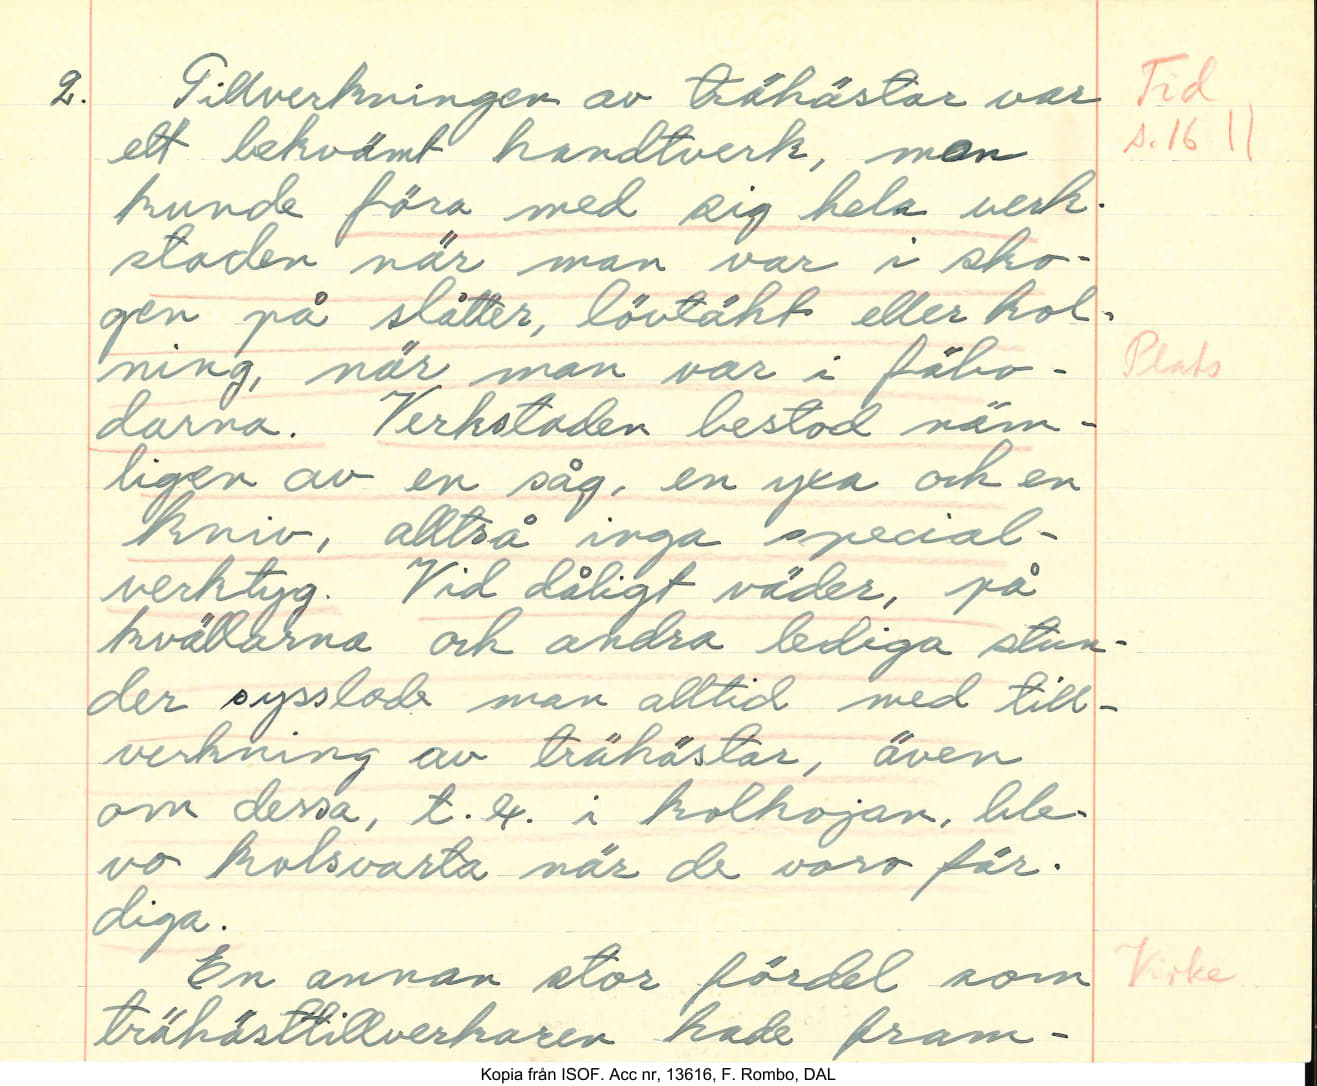 2. Tillverkningen av trähästar var
ett bekvämt handtverk, man
kunde föra med sig hela verk-
staden när man var i sko-
gen på slåtter, lövtäkt eller kol-
ning, när man var i fäbo-
darna. Verkstaden bestod näm-
ligen av en såg, en yxa och en
kniv, alltså inga special-
verktyg. Vid dåligt väder, på
kvällarna och andra lediga stun-
der sysslade man alltid med till-
verkning av trähästar, även
om dessa, t.ex. i kolkojan, ble-
vo kolsvarta när de voro fär-
diga.
En annan stor fördel som
trähästtillverkaren hade fram-
Tid
s. 16 ||
Plats
Virke
Kopia från ISOF. Acc nr, 13616, F. Rombo, DAL